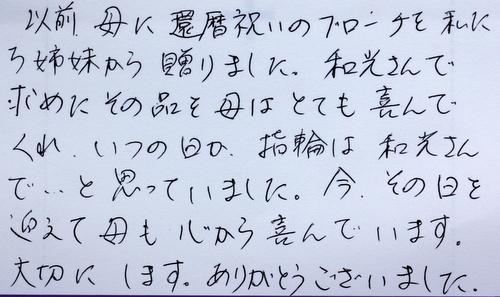 以前 母に還暦祝いのブローチを私た
ち姉妹から贈りました。和光さんで
求めたその品を母はとても喜んで
くれ、いつの日か、指輪は和光さん
で…と思っていました。今、その日を
迎えて母も心から喜んでいます。
大切にします。ありがとうございました。